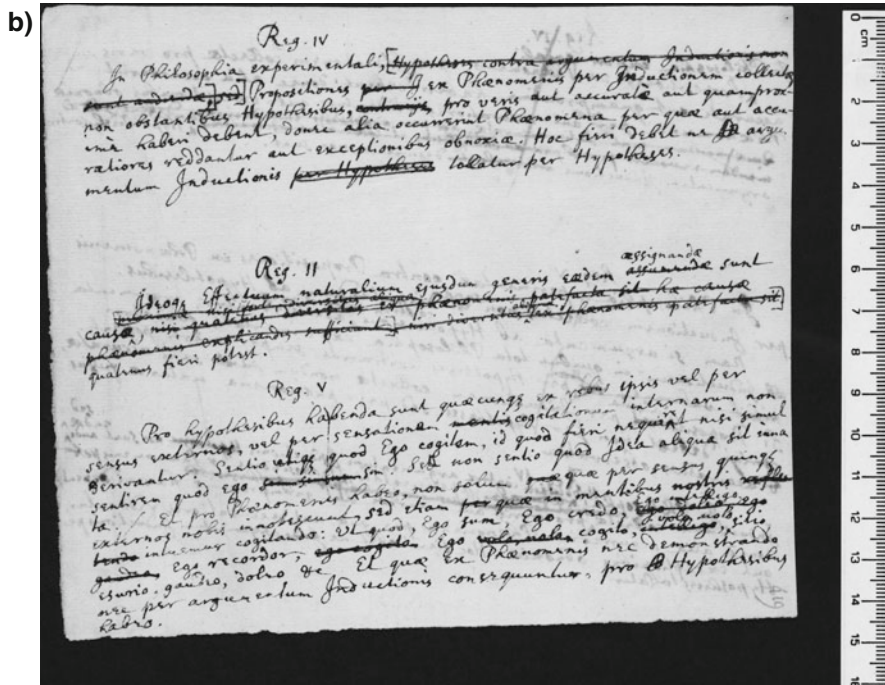 b)
Reg. IV
In Philosophia experimentali, [Hypotheses contra argumentum Inductionis non
sunt audiendæ, sed] Propositiones per ex Phænomenis per Inductionem collectæ
non obstantibus Hypothesibus, contrarijs, pro veris aut accuratè aut quamproxi-
mè haberi debent, donec alia occurrerint Phænomena per quæ aut accu-
ratiores reddantur aut exceptionibus obnoxiæ. Hoc fieri debet ne argu-
mentum Inductionis per Hypotheses tollatur per Hypotheses.
Reg. II
assignandæ
Ideoqꝫ Effectuum naturalium ejusdem generis eædem assumendæ sunt
causæ, nisi quatenus diversitas ex phænomenis patefacta sit hæ causæ
phænomenis explicandis sufficiant, nisi diversitas ex phænomenis patefacta sit]
quatenus fieri potest.
Reg. V
Pro hypothesibus habenda sunt quæcunqꝫ ex rebus ipsis vel per
sensus externos, vel per sensationem mentis cogitationum internarum non
derivantur. Sentio utiqꝫ quod Ego cogitem, id quod fieri nequiret nisi simul
sentirem quod ego sim. Sed non sentio quod Idea aliqua sit inna-
ta. Et pro Phænomenis habeo, non solum quæ per sensus quinqꝫ
externos nobis innotescunt, sed etiam quæ in mentibus nostris
intuemur cogitando: Ut quod, Ego sum, Ego credo, Ego intelligo, ego
gaudeo, Ego recordor, ego cogito Ego cogito, volo, nolo, sitio,
esurio, gaudeo, doleo &c. Et quæ ex Phænomenis nec demonstrando
nec per argumentum Inductionis consequuntur, pro Hypothesibus
habeo.
0
cm
1
2
3
4
5
6
7
8
9
10
11
12
13
14
15
16